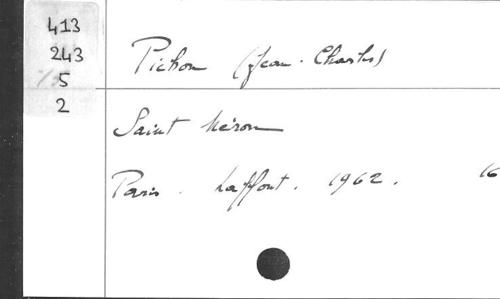 413
243
5
2
Pichon (Jean-Charles)
Saint Néron
Paris. Laffont. 1962. 16